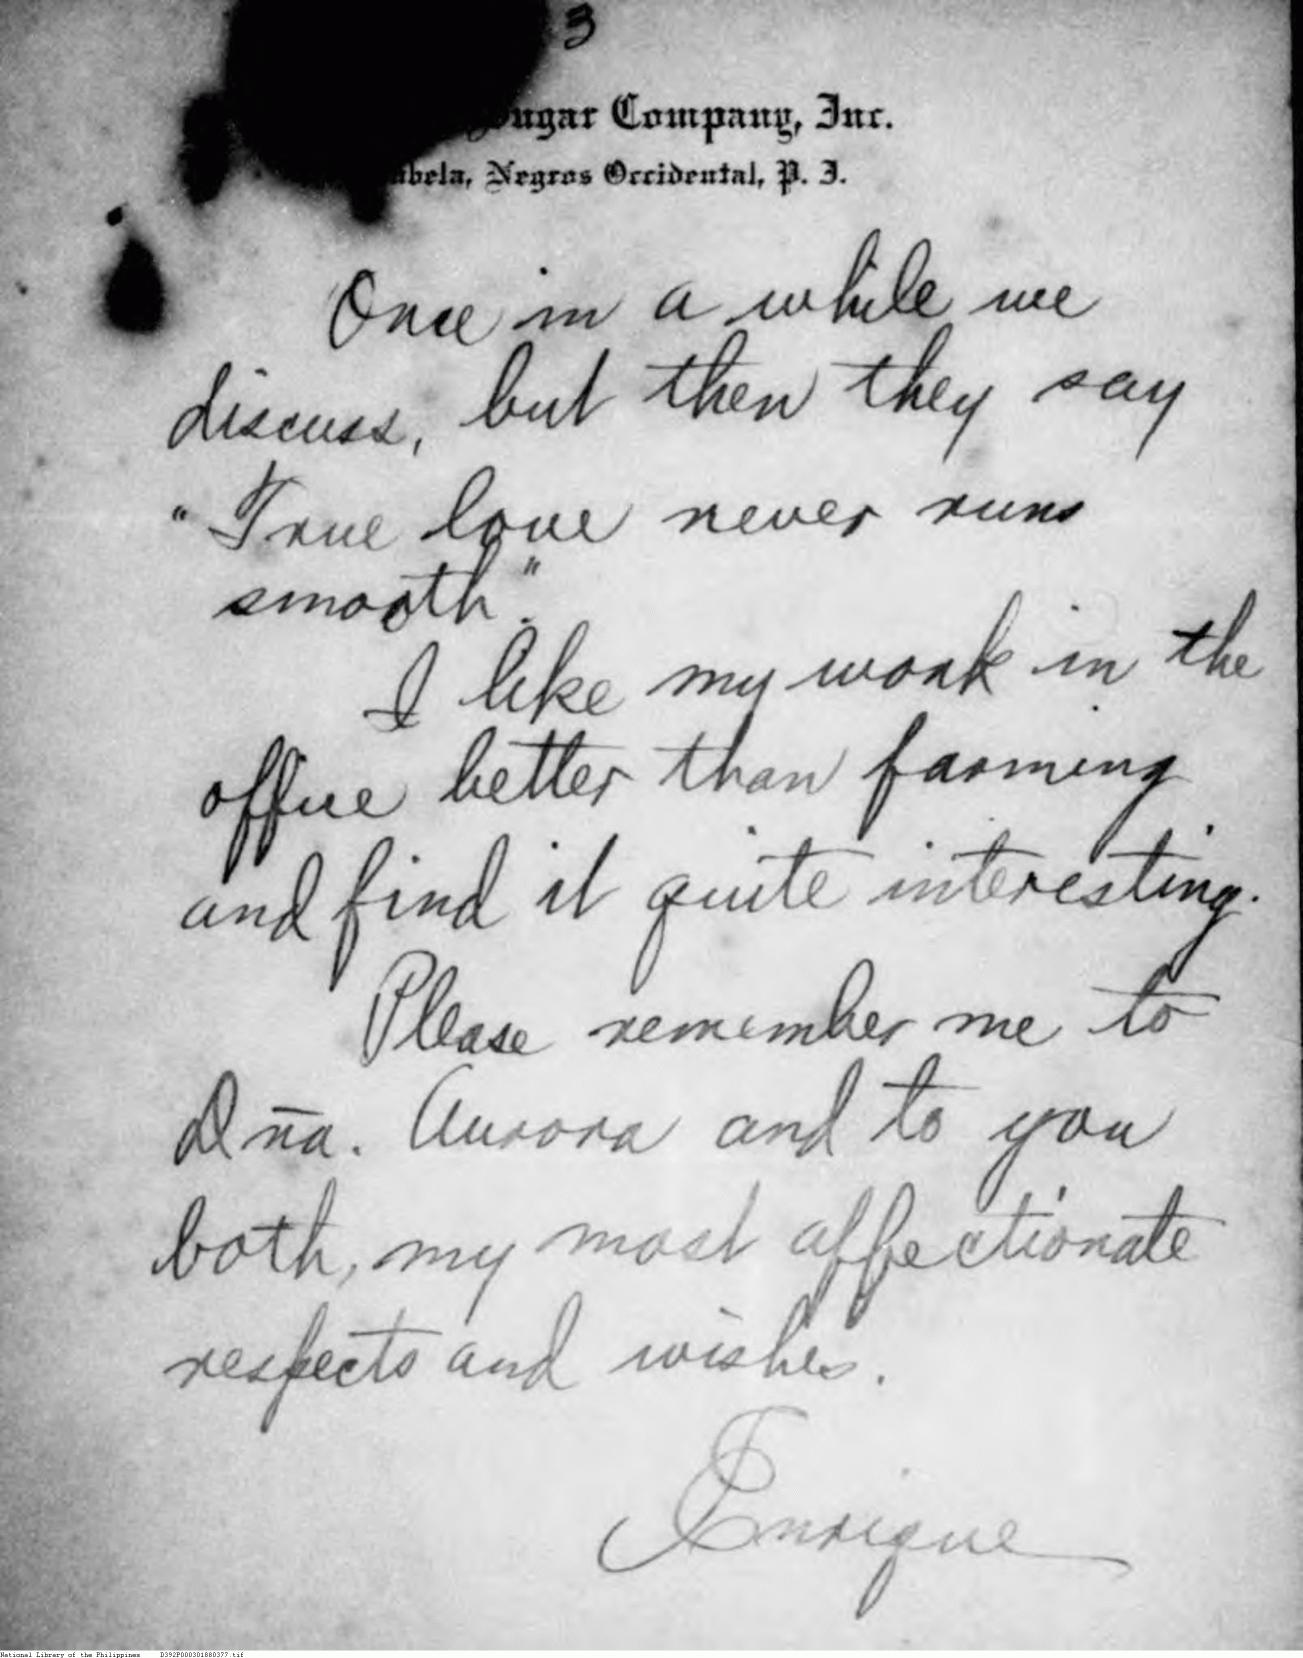 3
Sugar Company, Inc.
Negros Occidental, P. I.
Once in a while we
discuss, but then they say
"True love never runs
smooth."
I like my work in the
office better than farming
and find it quite interesting.
Please remember me to
Dña. Aurora and to you
both, my most affectionate
respects and wishes.
Enrique
National Library of the Philippines D392P000301880377.tif